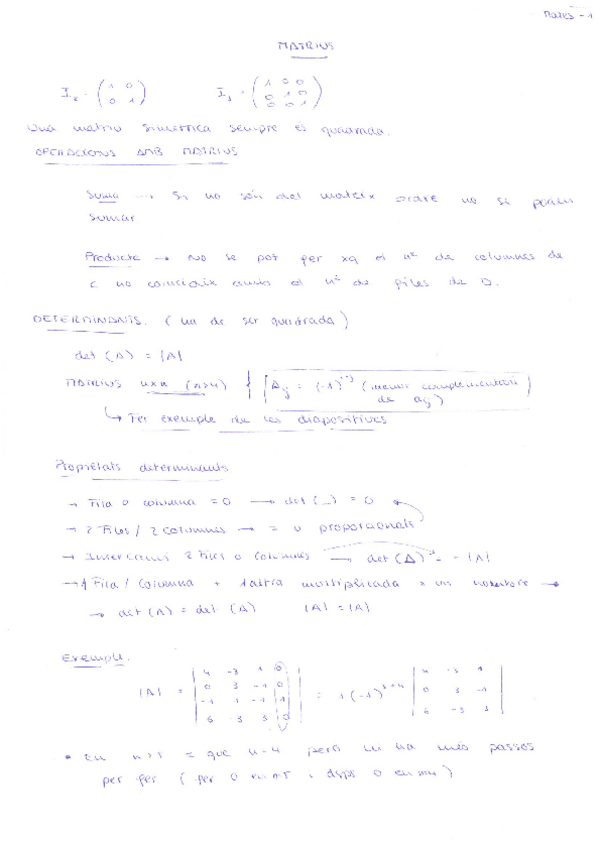 MATRIUS
I₂ = (1 0
0 1)
I₃ = (1 0 0
0 1 0
0 0 1)
Una matriu simetrica sempre és quadrada.
OPERACIONS AMB MATRIUS
Suma → Si no són del mateix ordre no se poden
sumar
Producte → No se pot per xq el nº de columnes de
C no coincideix amb el nº de files de D.
DETERMINANTS. (ha de ser quadrada)
det (A) = |A|
MATRIUS nxn (n>4) { [Aij = (-1)^i+j (menor complementari
de aij)
↳ Fer exemple de les diapositives
Propietats determinants
→ Fila o columna = 0 → det (_) = 0
→ 2 Files / 2 columnes → = o proporcionals
→ Intercanvi 2 files o columnes → det (A) = -|A|
→ 1 Fila / columna + 1 altra multiplicada x un nombre →
→ det (A) = det (A) |A| = |A|
Exemple.
|A| = | 4 -3 1 0
0 3 -1 0
-1 1 -1 1
6 -3 3 0 | = 1 (-1)^3+4 | 4 -3 1
0 3 -1
6 -3 3 |
• En n>5 = que n-4 però hi ha més passes
per fer (fer 0 en